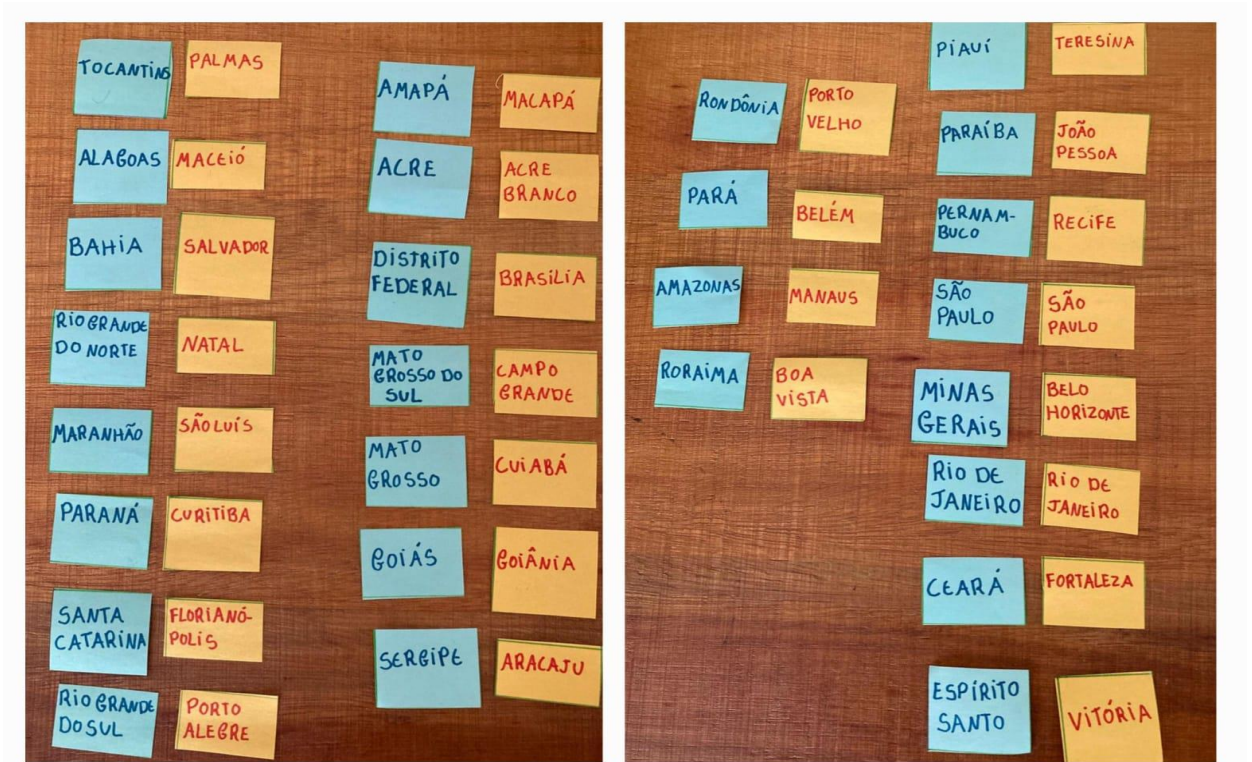 TOCANTINS
PALMAS
ALAGOAS
MACEIÓ
BAHIA
SALVADOR
RIO GRANDE
DO NORTE
NATAL
MARANHÃO
SÃO LUÍS
PARANÁ
CURITIBA
SANTA
CATARINA
FLORIANÓ-
POLIS
RIO GRANDE
DO SUL
PORTO
ALEGRE
AMAPÁ
MACAPÁ
ACRE
ACRE
BRANCO
DISTRITO
FEDERAL
BRASILIA
MATO
GROSSO DO
SUL
CAMPO
GRANDE
MATO
GROSSO
CUIABÁ
GOIÁS
GOIÂNIA
SERGIPE
ARACAJU
RONDÔNIA
PORTO
VELHO
PARÁ
BELÉM
AMAZONAS
MANAUS
RORAIMA
BOA
VISTA
PIAUÍ
TERESINA
PARAÍBA
JOÃO
PESSOA
PERNAM-
BUCO
RECIFE
SÃO
PAULO
SÃO
PAULO
MINAS
GERAIS
BELO
HORIZONTE
RIO DE
JANEIRO
RIO DE
JANEIRO
CEARÁ
FORTALEZA
ESPÍRITO
SANTO
VITÓRIA